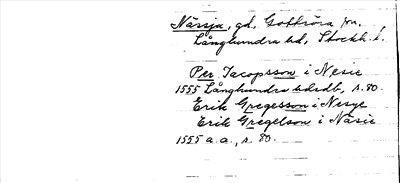 Närsja, gd, Gottröra sn.
Långhundra hd, Stockh. l.
Per Jacopsson i Nesie
1555 Långhundra hdsdb, s. 80.
Erik Gregesson i Nesye
Erik Gregelson i Näsie
1555 a.a., s. 80.